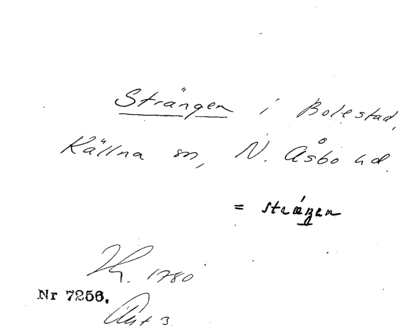 Strängen i Bolestad,
Källna sn, N. Åsbo hd.
= strängen
Kr. 1780
Nr 7256.
Akt 3